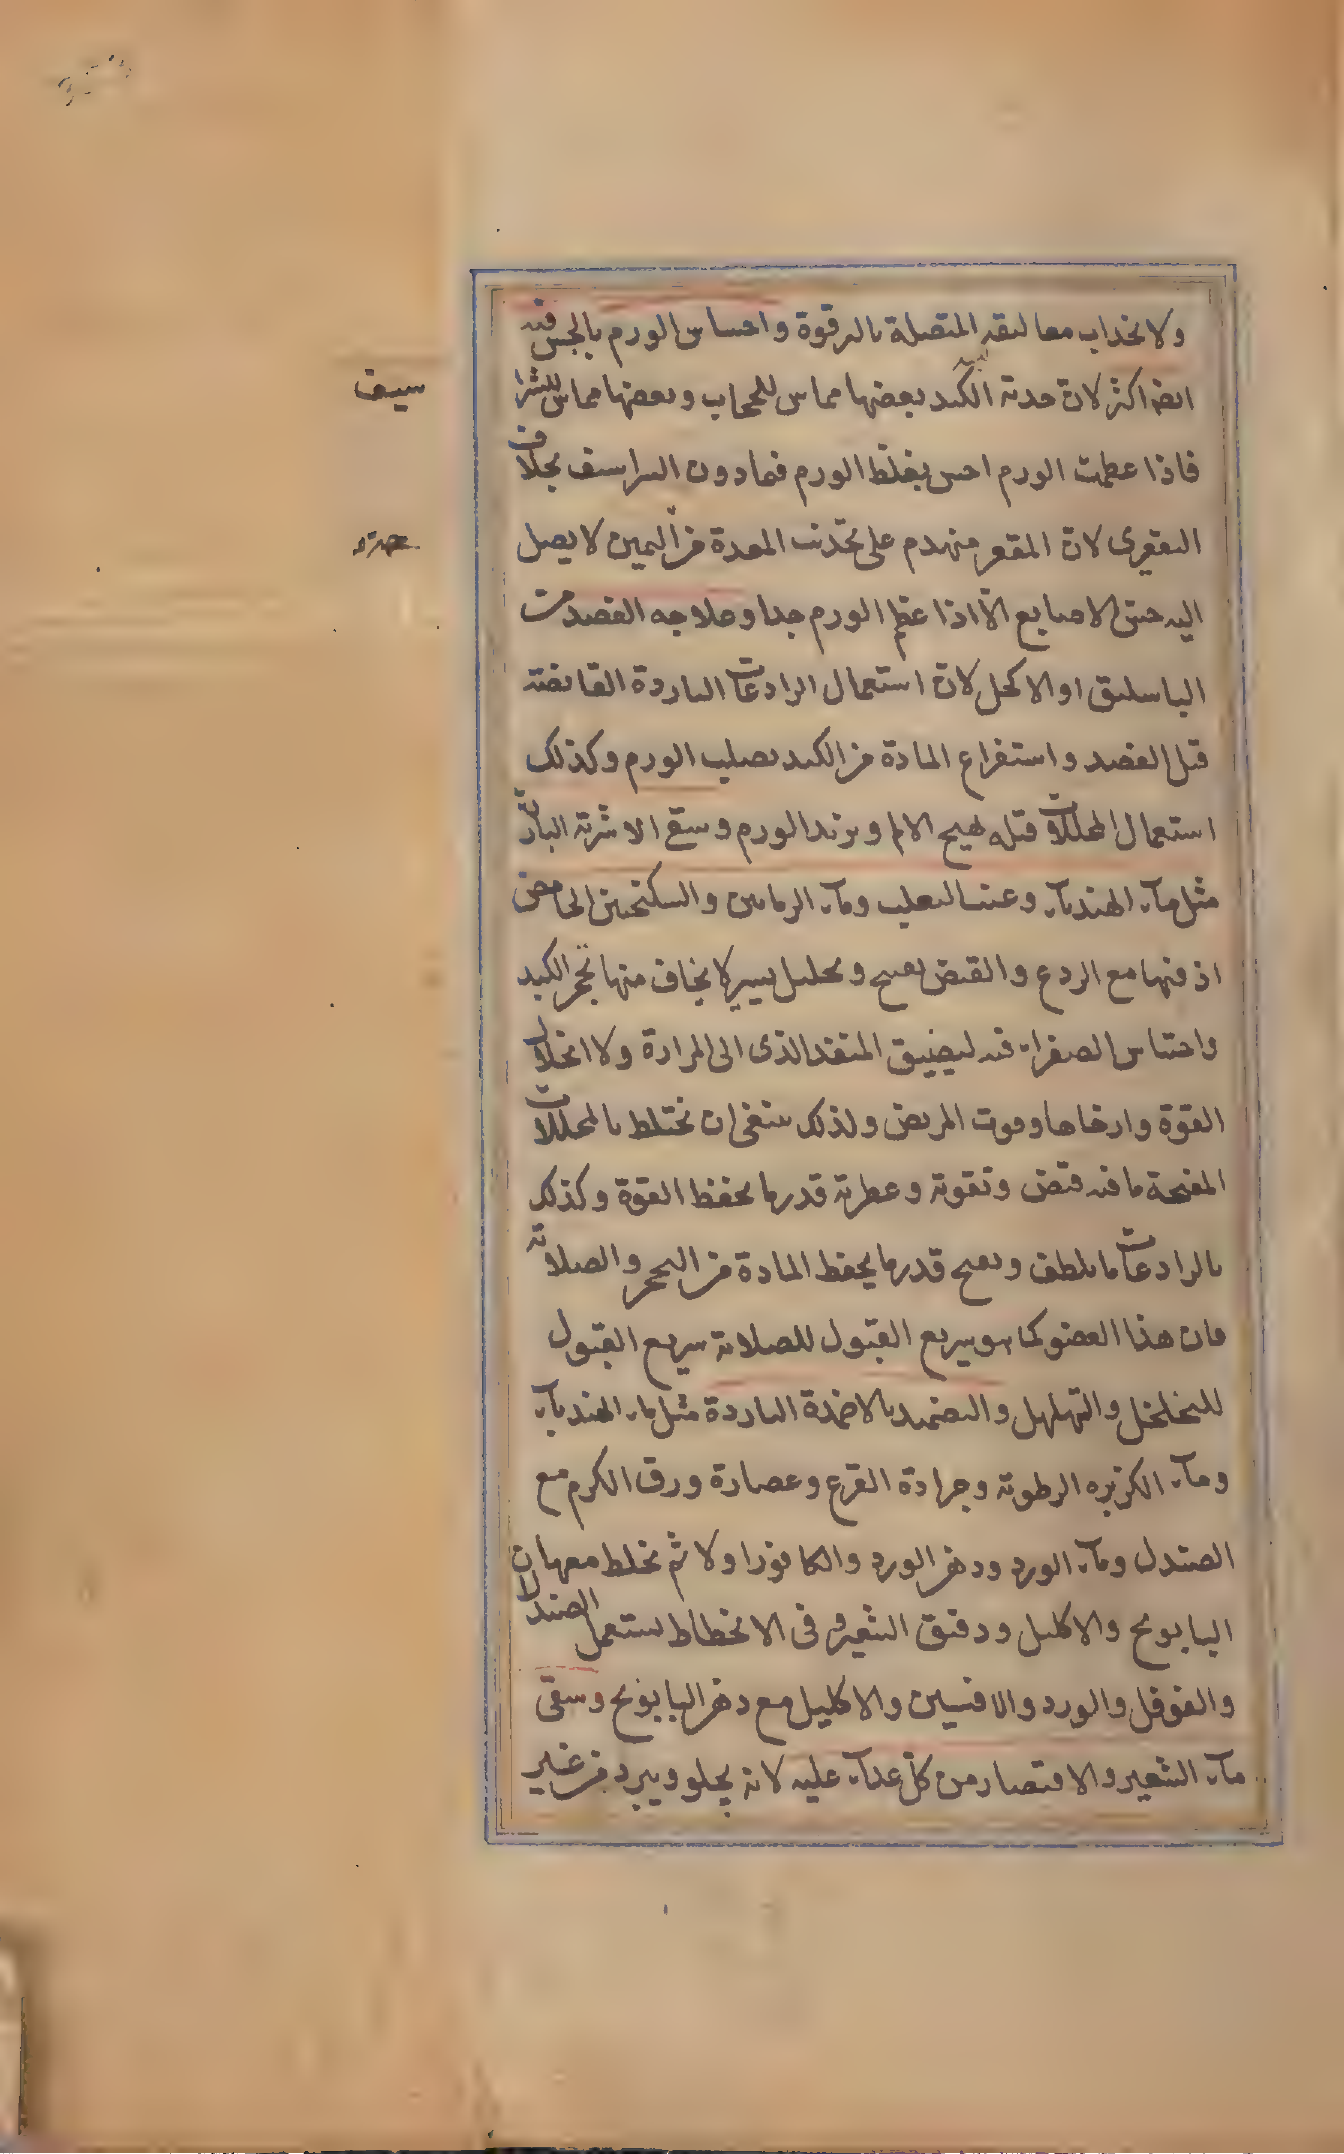 ولانخداب معاليقه المتصلة بالترقوة واحساس الورم بالجس فيه
ايضا اكثر لان حدبة الكبد بعضها مماس للحجاب وبعضها مماس للشرا
سيف
فاذا عظمت الورم احس بغلظ الورم فيما دون الشراسيف بخلاف
التقعيرى لان المقعر منهدم على تحدب المعدة من اليمين لا يصل
اليه حس الاصابع الا اذا عظم الورم جدا وعلاجه الفصد من
الباسليق او الاكحل لان استعمال الرادعات الباردة القابضة
قبل الفصد واستفراغ المادة من الكبد يصلب الورم وكذلك
استعمال المحللات قبله يهيج الالم ويزيد الورم وسقى الاشربة الباردة
مثل مآء الهندبآء وعنب الثعلب ومآء الرمانين والسكنجبين الحامض
اذ فيها مع الردع والقبض تفتيح وتحليل يسير لا يخاف منها تحجر الكبد
واحتباس الصفراء فيه لتضييق المنفذ الذى الى المرارة ولا انحلال
القوة وارخاها وموت المريض ولذلك ينبغى ان تختلط بالمحللات
المفتحة ما فيه قبض وتقوية وعطرية قدر ما يحفظ القوة وكذلك
بالرادعات ما يلطف ويفتح قدر ما يحفظ المادة من التحجر والصلابة
فان هذا العضو كما هو سريع القبول للصلابة سريع القبول
للتخلخل والتهلهل والتضميد بالاضمدة الباردة مثل ماء الهندبآء
ومآء الكزبره الرطوبة وجرادة القرع وعصارة ورق الكرم مع
الصندل ومآء الورد ودهن الورد والكافور اولا ثم تخلط معها من
البابونج والاكليل ودقيق الشعير وفى الانحطاط يستعمل الصندل
والفوفل والورد والافسنتين والاكليل مع دهن البابونج وسقى
مآء الشعير والاقتصار من كل غذآء عليه لانه يجلو ويبرد من غير